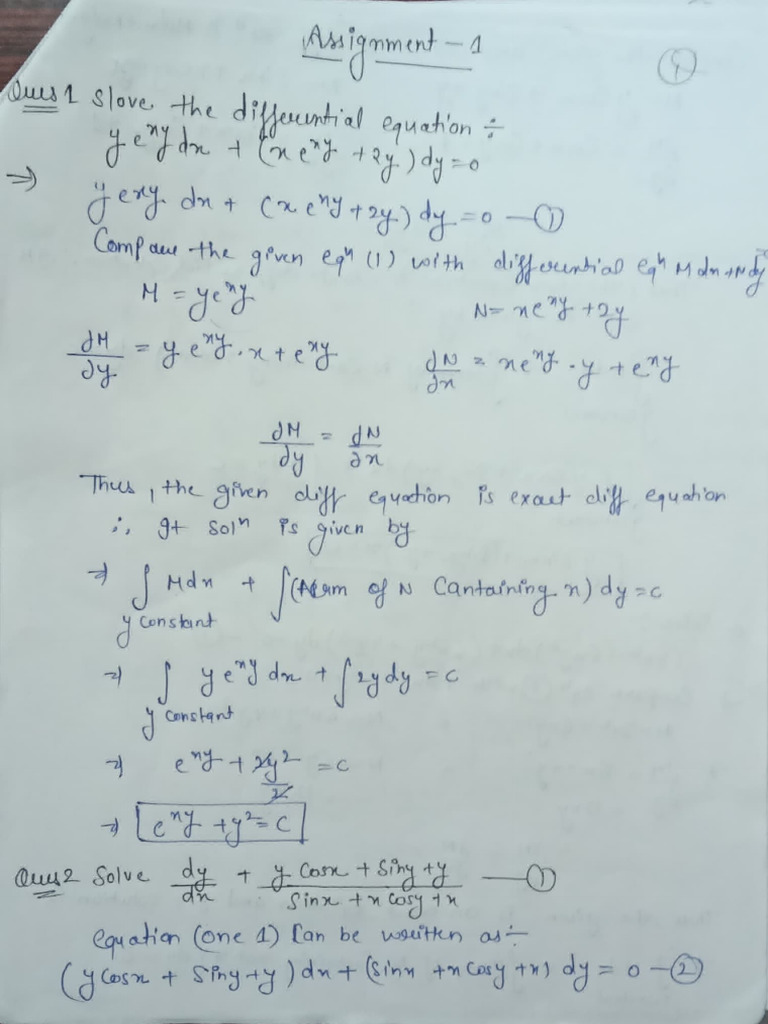 Assignment - 1
Ques 1 Slove the differential equation ÷
y e^xy dx + (x e^xy + 2y) dy = 0
⇒
y exy dx + (x e^xy + 2y) dy = 0 — ①
Compare the given eqⁿ (1) with differential eqⁿ M dx + N dy
M = y e^xy N = x e^xy + 2y
∂M/∂y = y e^xy · x + e^xy ∂N/∂x = x e^xy · y + e^xy
∂M/∂y = ∂N/∂x
Thus, the given diff equation is exact diff equation
∴ It solⁿ is given by
⇒ ∫ M dx + ∫ (term of N Cantaining x) dy = c
y constant
⇒ ∫ y e^xy dx + ∫ 2y dy = c
y constant
⇒ e^xy + 2y²/2 = c
⇒ e^xy + y² = c
Ques 2 Solve dy/dx + (y cosx + siny + y)/(sinx + x cosy + x) — ①
equation (one 1) Can be written as ÷
(y cosx + siny + y) dx + (sinx + x cosy + x) dy = 0 — ②